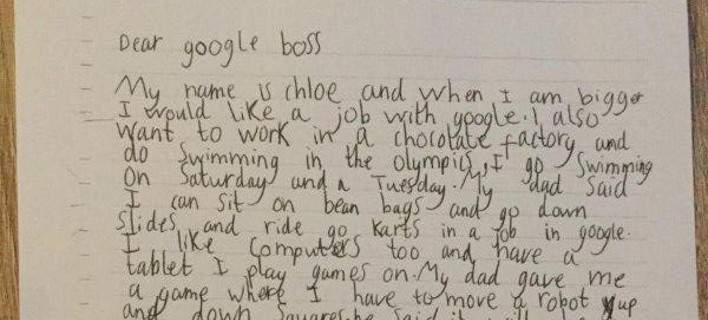 Dear google boss
My name is chloe and when I am bigger
I would like a job with google. I also
want to work in a chocolate factory and
do swimming in the olympics, I go Swimming
on Saturday and a Tuesday. My dad said
I can sit on bean bags and go down
slides and ride go karts in a job in google.
I like computers too and have a
tablet I play games on. My dad gave me
a game where I have to move a robot up
and down squares, he said it will